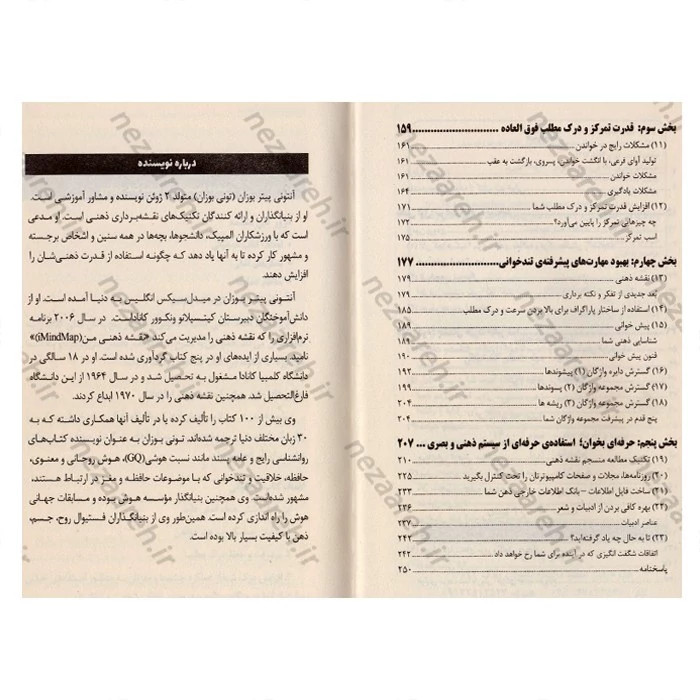 بخش سوم: قدرت تمرکز و درک مطلب فوق العاده ............................ ۱۵۹
(۱۱) مشکلات رایج در خواندن ............................ ۱۶۱
تولید آوای فرعی، با انگشت خواندن، پسروی، بازگشت به عقب ............................ ۱۶۱
مشکلات خواندن ............................ ۱۶۱
مشکلات یادگیری ............................ ۱۶۴
(۱۲) افزایش قدرت تمرکز و درک مطلب شما ............................ ۱۷۱
چه چیزهایی تمرکز را پایین می‌آورد؟ ............................ ۱۷۲
اسب تمرکز ............................ ۱۷۵
بخش چهارم: بهبود مهارت‌های پیشرفته‌ی تندخوانی ............................ ۱۷۷
(۱۳) نقشه ذهنی ............................ ۱۷۹
بُعد جدیدی از تفکر و نکته برداری ............................ ۱۷۹
(۱۴) استفاده از ساختار پاراگراف برای بالا بردن سرعت و درک مطلب ............................ ۱۸۵
(۱۵) پیش خوانی ............................ ۱۸۹
شناسایی ذهنی شما ............................ ۱۸۹
فنون پیش خوانی ............................ ۱۹۰
(۱۶) گسترش دایره واژگان (۱) پیشوندها ............................ ۱۹۲
(۱۷) گسترش مجموعه واژگان (۲) پسوندها ............................ ۱۹۹
(۱۸) گسترش مجموعه واژگان (۳) ریشه ها ............................ ۲۰۴
پنج قدم در پیشرفت مجموعه واژگان شما ............................ ۲۰۴
بخش پنجم: حرفه‌ای بخوان؛ استفاده‌ی حرفه‌ای از سیستم ذهنی و بصری ... ۲۰۷
(۱۹) تکنیک مطالعه منسجم نقشه ذهنی ............................ ۲۱۰
(۲۰) روزنامه‌ها، مجلات و صفحات کامپیوترتان را تحت کنترل بگیرید ............................ ۲۲۵
(۲۱) ساخت فایل اطلاعات – بانک اطلاعات خارجی ذهن شما ............................ ۲۳۳
(۲۲) بهره کافی بردن از ادبیات و شعر ............................ ۲۳۶
عناصر ادبیات ............................ ۲۳۷
(۲۳) تا به حال چه یاد گرفته‌اید؟ ............................ ۲۴۲
اتفاقات شگفت انگیزی که در آینده برای شما رخ خواهد داد ............................ ۲۴۲
پاسخنامه ............................ ۲۵۰
درباره نویسنده
آنتونی پیتر بوزان (تونی بوزان) متولد ۲ ژوئن نویسنده و مشاور آموزشی است.
او از بنیانگذاران و ارائه کنندگان تکنیک‌های نقشه‌برداری ذهنی است. او مدعی
است که با ورزشکاران المپیک، دانشجوها، بچه‌ها در همه سنین و اشخاص برجسته
و مشهور کار کرده تا به آنها یاد دهد که چگونه استفاده از قدرت ذهنی‌شان را
افزایش دهند.
آنتونی پیتر بوزان در میدل‌سیکس انگلیس به دنیا آمده است. او از
دانش‌آموختگان دبیرستان کیتسیلانو ونکوور کاناداست. در سال ۲۰۰۶ برنامه
نرم‌افزاری را که نقشه ذهنی را مدیریت می‌کند «نقشه ذهنی من(iMindMap)»
نامید. بسیاری از ایده‌های او در پنج کتاب گردآوری شده است. او در ۱۸ سالگی در
دانشگاه کلمبیا کانادا مشغول به تحصیل شد و در سال ۱۹۶۴ از این دانشگاه
فارغ‌التحصیل شد. همچنین نقشه ذهنی را در سال ۱۹۷۰ ابداع کردند.
وی بیش از ۱۰۰ کتاب را تألیف کرده یا در تألیف آنها همکاری داشته که به
۳۰ زبان مختلف دنیا ترجمه شده‌اند. تونی بوزان به عنوان نویسنده کتاب‌های
روانشناسی رایج و عامه پسند مانند نسبت هوشی(GQ)، هوش روحانی و معنوی،
حافظه، خلاقیت و تندخوانی که با موضوعات حافظه و مغز در ارتباط هستند،
مشهور شده‌است. وی همچنین بنیانگذار مؤسسه هوش بوده و مسابقات جهانی
هوش را راه اندازی کرده است. همین‌طور وی از بنیانگذاران فستیوال روح، جسم،
ذهن با کیفیت بسیار بالا بوده است.
nezaareh.ir